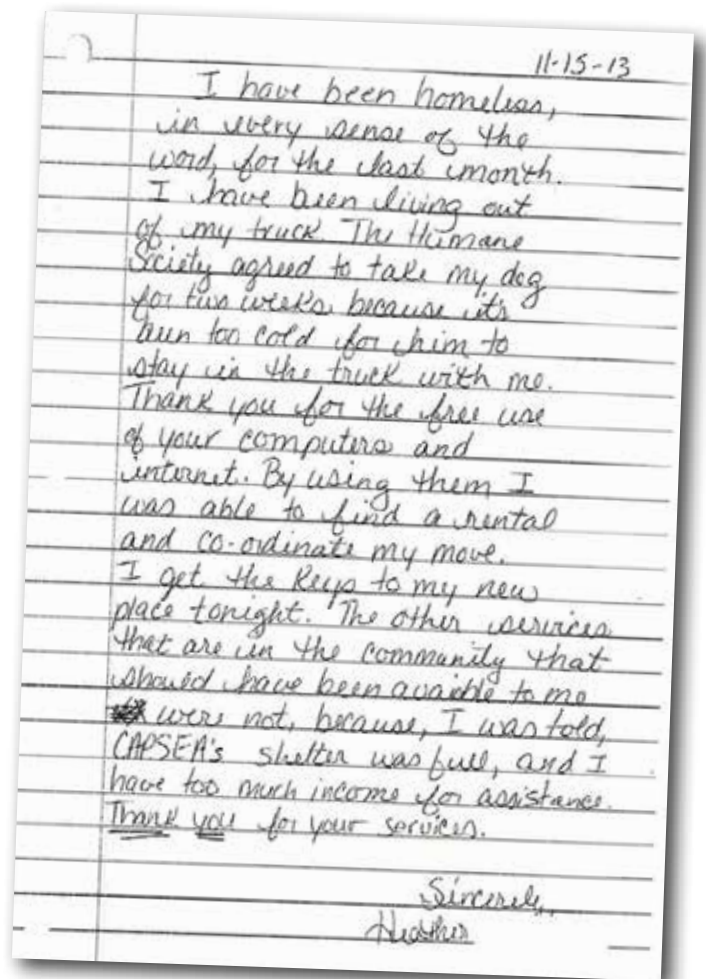 11-15-13
I have been homeless,
in every sense of the
word, for the last month.
I have been living out
of my truck. The Humane
Society agreed to take my dog
for two weeks, because it's
been too cold for him to
stay in the truck with me.
Thank you for the free use
of your computers and
internet. By using them I
was able to find a rental
and co-ordinate my move.
I get the keys to my new
place tonight. The other services
that are in the community that
should have been avaible to me
were not, because, I was told,
CAPSEA's shelter was full, and I
have too much income for assistance.
Thank you for your services.
Sincerely,
Heather